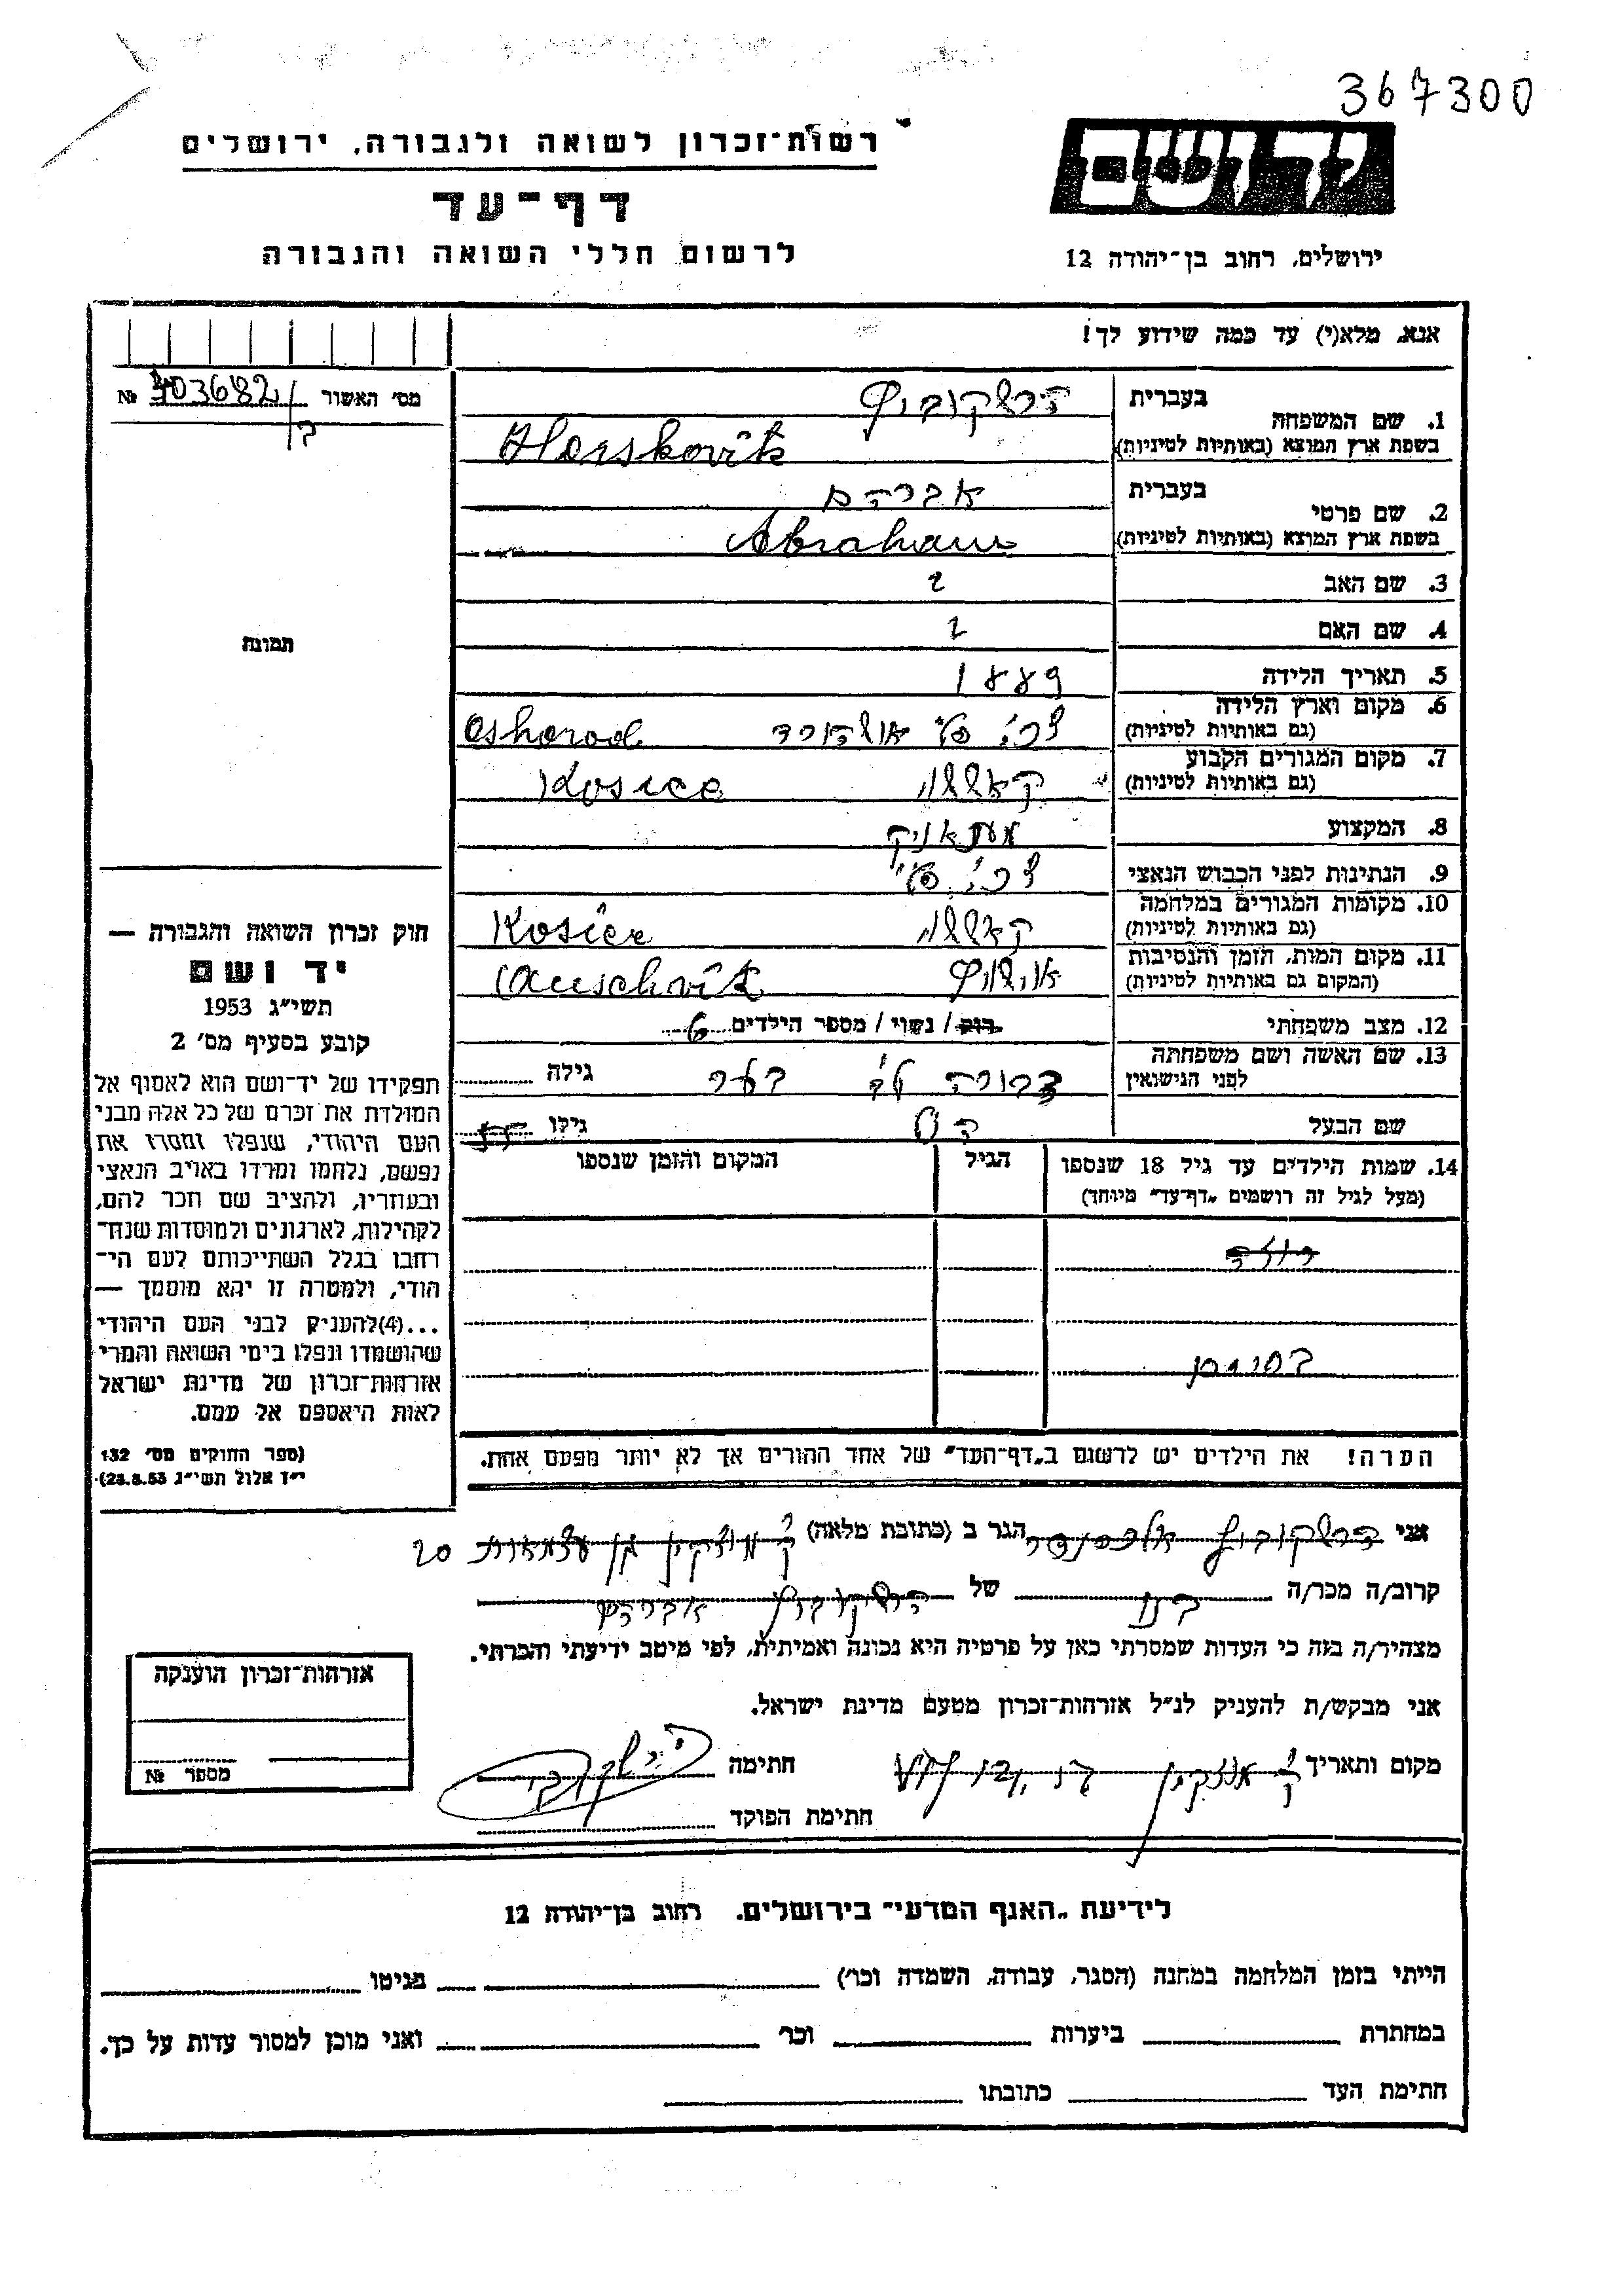 367300
רשות־זכרון לשואה ולגבורה, ירושלים
יד ושם
דף־עד
לרשום חללי השואה והגבורה
ירושלים, רחוב בן־יהודה 12
אנא, מלא(י) עד כמה שידוע לך!
מס׳ האשור № 403682
1. שם המשפחה
בעברית הרשקוביץ
בשפת ארץ המוצא (באותיות לטיניות) Herskovitz
2. שם פרטי
בעברית אברהם
בשפת ארץ המוצא (באותיות לטיניות) Abraham
3. שם האב ?
4. שם האם ?
5. תאריך הלידה 1889
6. מקום וארץ הלידה
(גם באותיות לטיניות) צ׳כ׳ סל׳ אושהורד Oshorod
7. מקום המגורים הקבוע
(גם באותיות לטיניות) קאשוי Kosice
8. המקצוע
9. הנתינות לפני הכבוש הנאצי צ׳כ׳ סל׳
10. מקומות המגורים במלחמה
(גם באותיות לטיניות) קאשוי Kosice
11. מקום המות, הזמן והנסיבות
(המקום גם באותיות לטיניות) אושויץ Auschvitz
12. מצב משפחתי רוק / נשוי / מספר הילדים 6
13. שם האשה ושם משפחתה
לפני הנישואין דבורה לב׳ בער גילה
שם הבעל גילו
14. שמות הילדים עד גיל 18 שנספו
(מעל לגיל זה רושמים „דף־עד״ מיוחד)
הגיל
המקום והזמן שנספו
הערה! את הילדים יש לרשום ב„דף־העד״ של אחד ההורים אך לא יותר מפעם אחת.
תמונה
חוק זכרון השואה והגבורה —
יד ושם
תשי״ג 1953
קובע בסעיף מס׳ 2
תפקידו של יד־ושם הוא לאסוף אל
המולדת את זכרם של כל אלה מבני
העם היהודי, שנפלו ומסרו את
נפשם, נלחמו ומרדו באויב הנאצי
ובעוזריו, ולהציב שם וזכר להם,
לקהילות, לארגונים ולמוסדות שנח־
רחבו בגלל השתייכותם לעם הי־
הודי, ולמטרה זו יהא מוסמך —
...(4)להעניק לבני העם היהודי
שהושמדו ונפלו בימי השואה והמרי
אזרחות־זכרון של מדינת ישראל
לאות היאספם אל עמם.
(ספר החוקים מס׳ 132
י״ז אלול תשי״ג 28.8.53)
אני הרשקוביץ אלכסנדר הגר ב (כתובת מלאה) ק׳ מוצקין עצמאות 20
קרוב/ה מכר/ה בנו של הרשקוביץ אברהם
מצהיר/ה בזה כי העדות שמסרתי כאן על פרטיה היא נכונה ואמיתית, לפי מיטב ידיעתי והכרתי.
אני מבקש/ת להעניק לנ״ל אזרחות־זכרון מטעם מדינת ישראל.
מקום ותאריך ק׳ מוצקין חתימה
חתימת הפוקד
אזרחות־זכרון הוענקה
מספר №
לידיעת „האגף המדעי״ בירושלים, רחוב בן־יהודה 12
הייתי בזמן המלחמה במחנה (הסגר, עבודה, השמדה וכו׳) בגיטו
במחתרת ביערות וכו׳ ואני מוכן למסור עדות על כך.
חתימת העד כתובתו